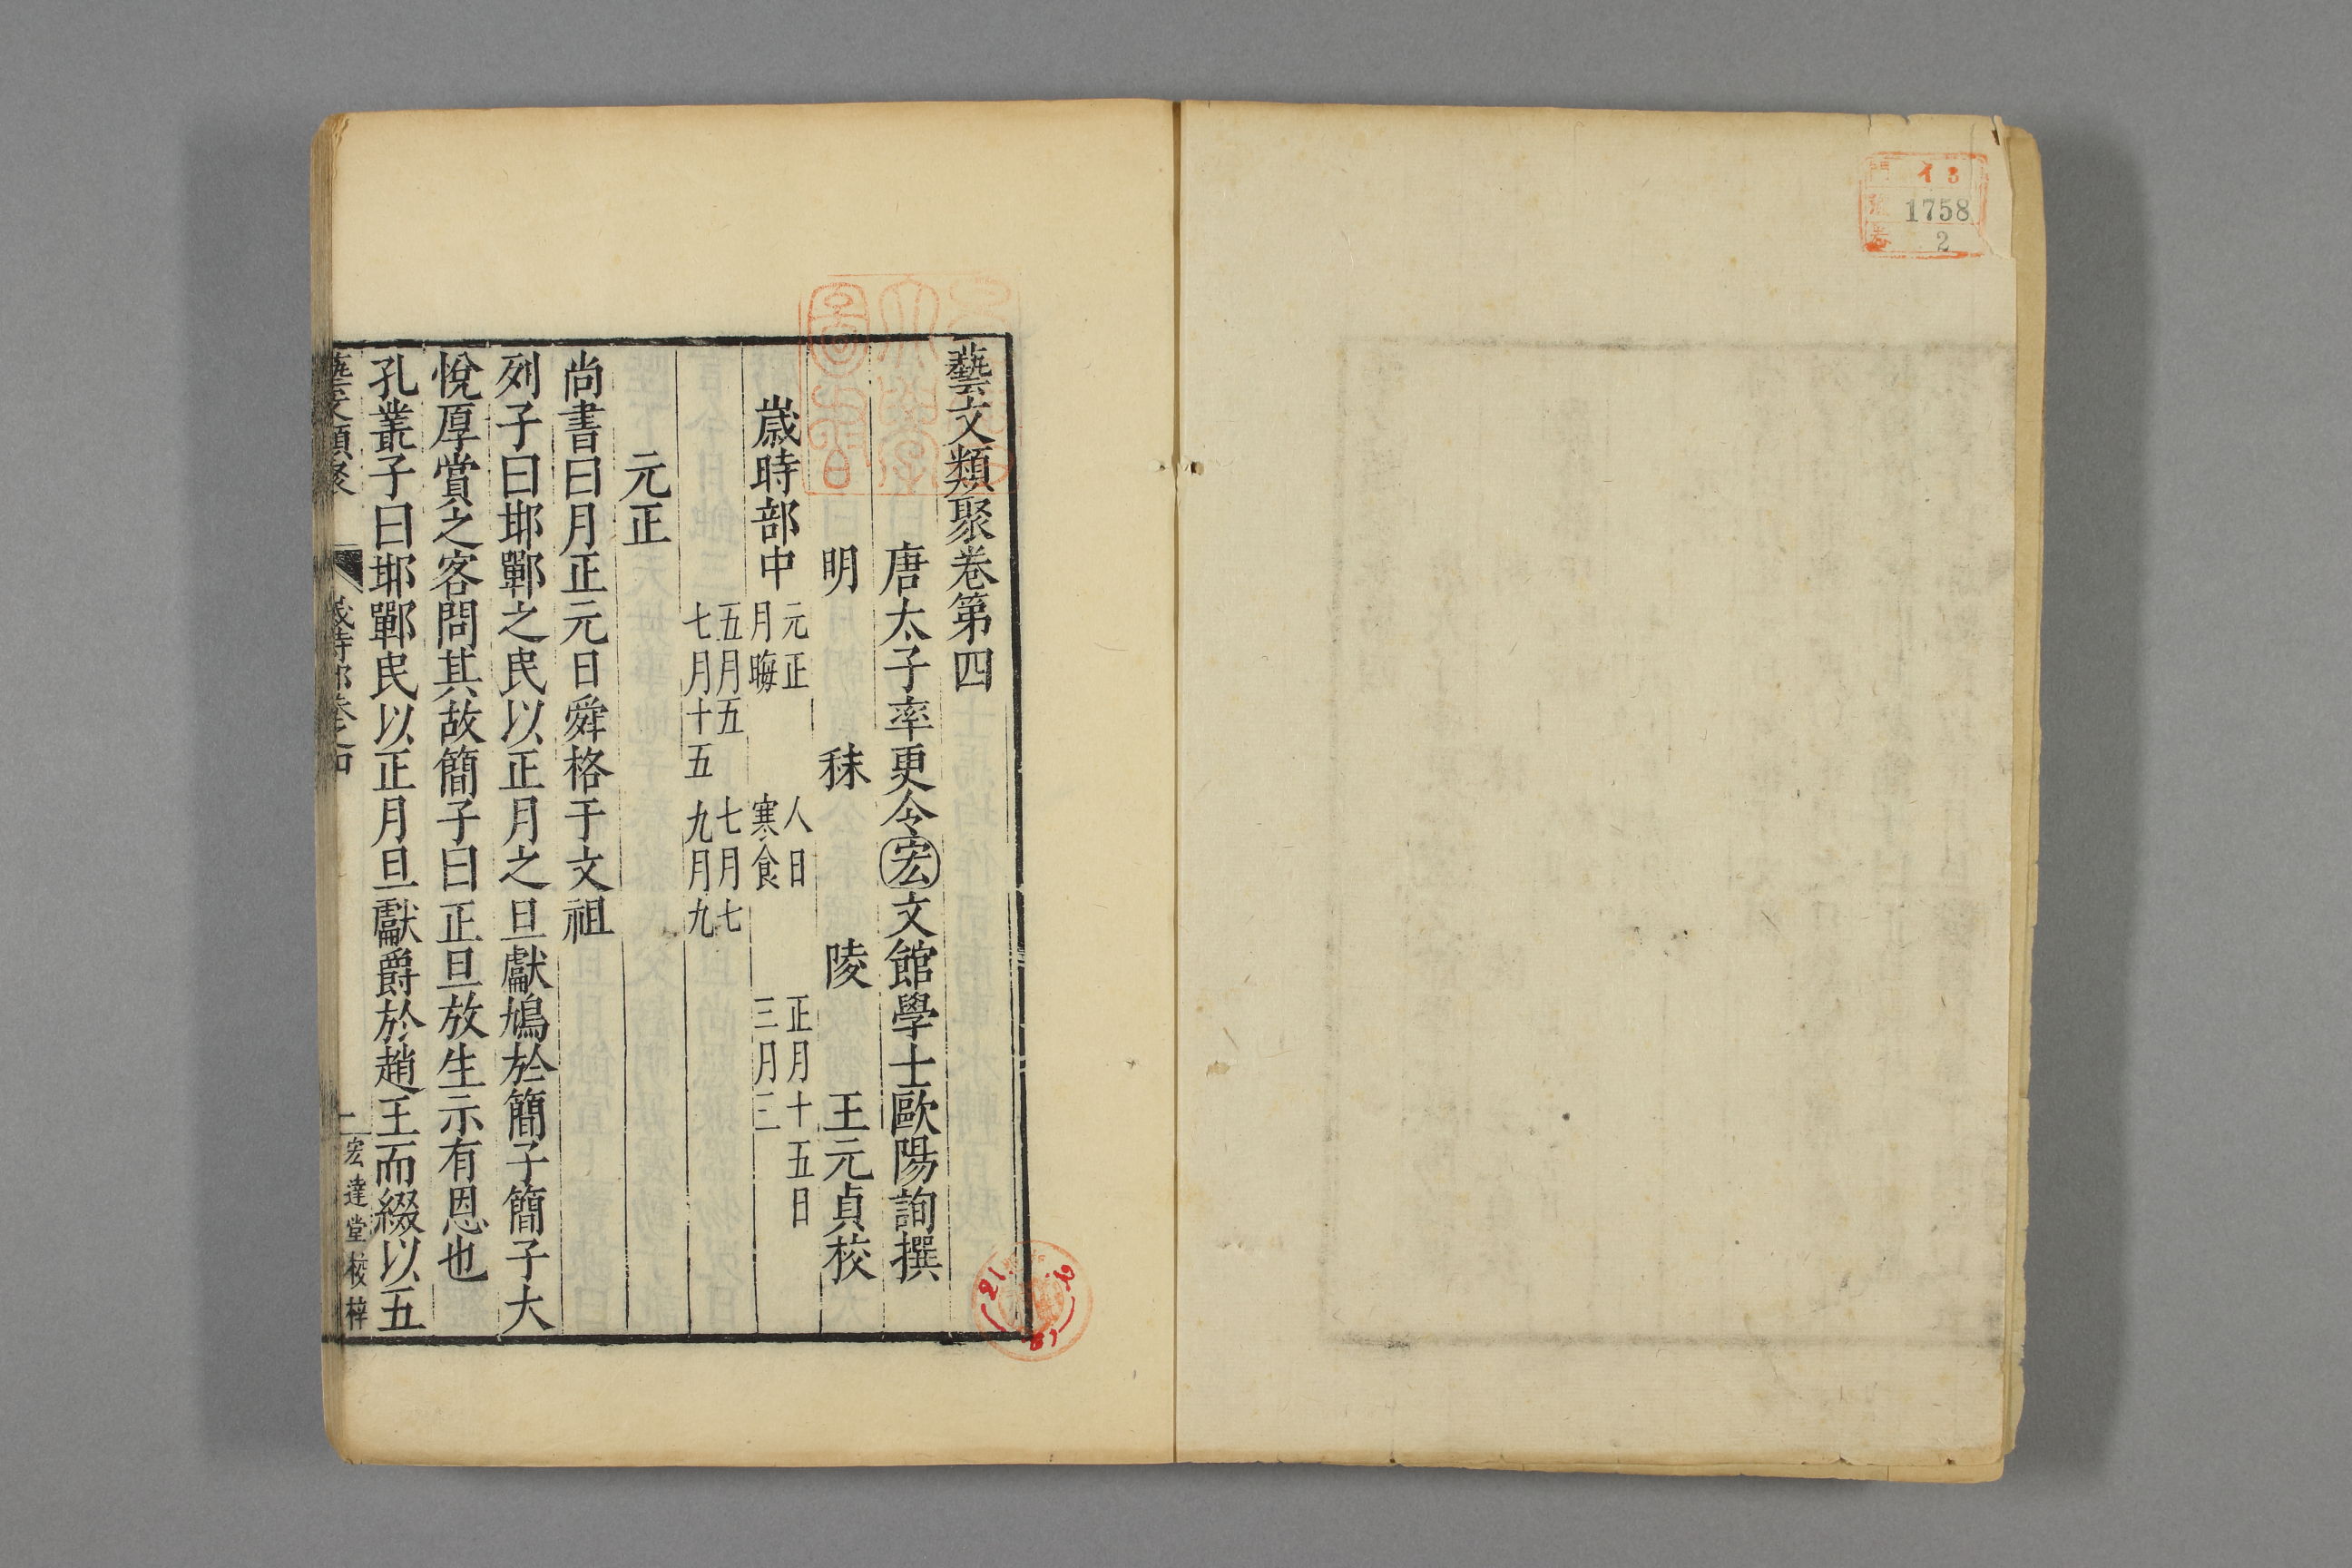 イ3
1758
2
藝文類聚卷第四
唐太子率更令宏文館學士歐陽詢撰
明 秣 陵 王元貞校
歲時部中
元正 人日 正月十五日
月晦 寒食 三月三
五月五 七月七
七月十五 九月九
元正
尚書曰月正元日舜格于文祖
列子曰邯鄲之民以正月之旦獻鳩於簡子簡子大
悅厚賞之客問其故簡子曰正旦放生示有恩也
孔叢子曰邯鄲民以正月旦獻爵於趙王而綴以五
藝文類聚 歲時部卷之四 一 宏達堂校梓